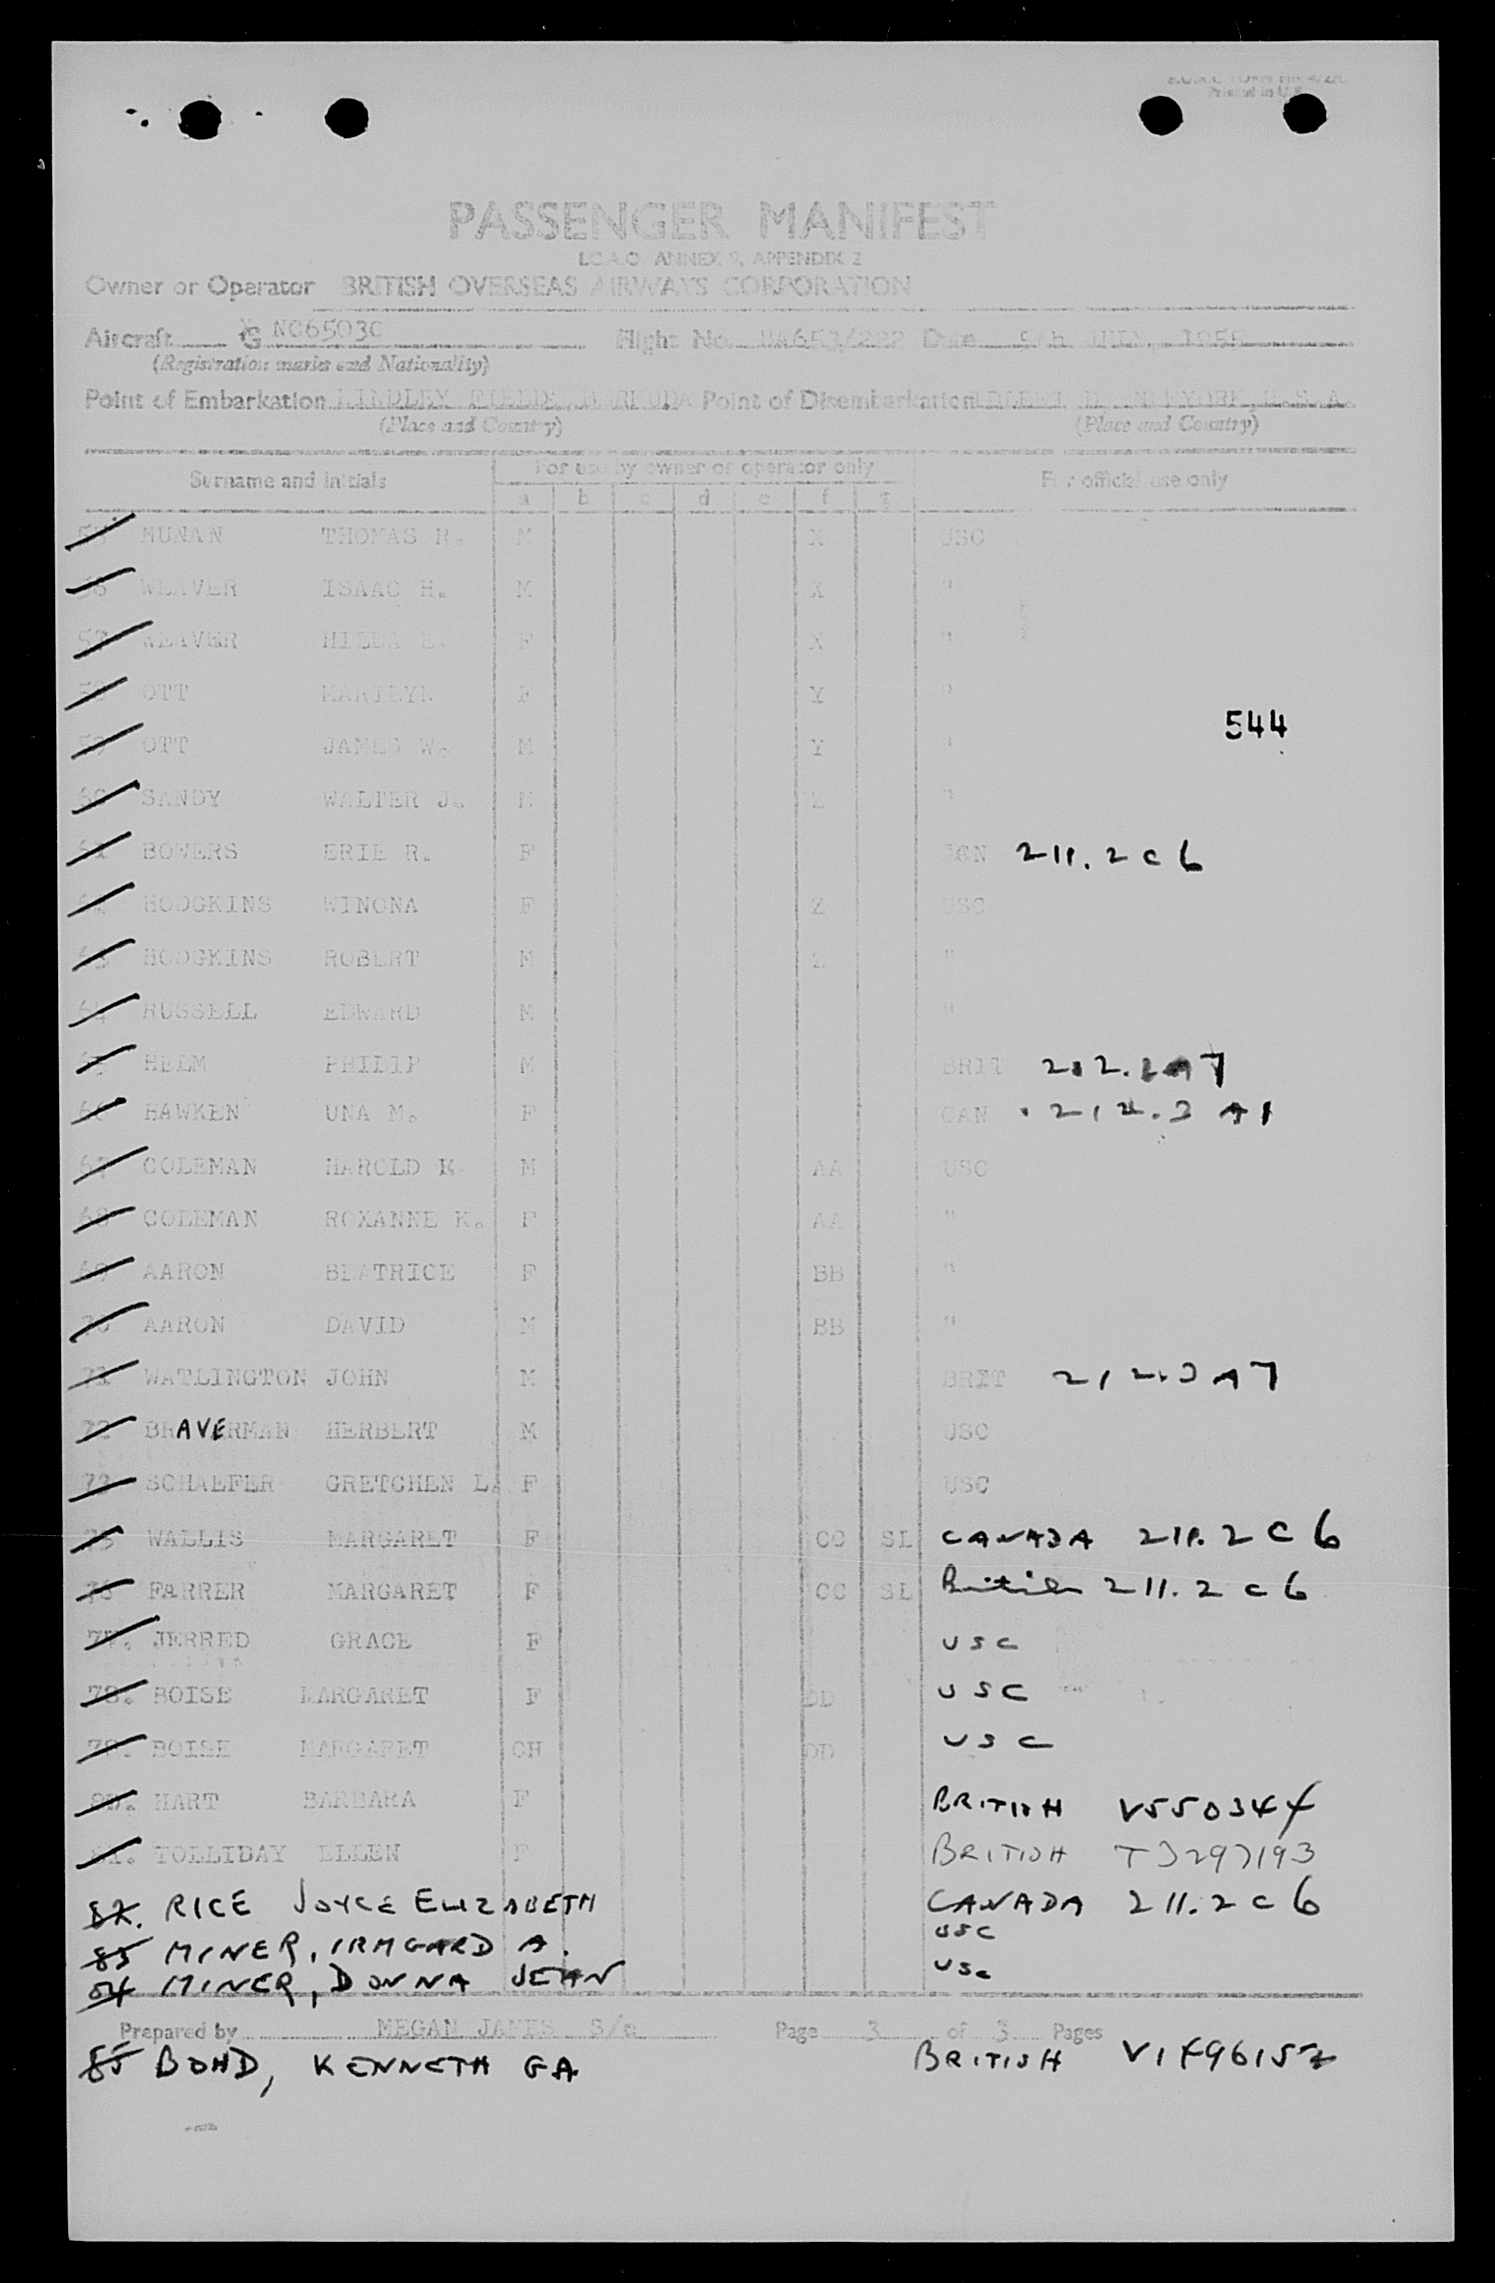 Printed in U.K.
PASSENGER MANIFEST
I.C.A.O. ANNEX 9, APPENDIX 2
Owner or Operator BRITISH OVERSEAS AIRWAYS CORPORATION
Aircraft G Flight No. BA653/222 Date 5th
(Registration marks and Nationality)
Point of Embarkation KINDLEY FIELD, BERMUDA Point of Disembarkation U.S.A.
(Place and Country) (Place and Country)
Surname and Initials For use by owner or operator only For official use only
a b c d e f g
NUNAN THOMAS R. M X USC
WEAVER ISAAC H. M X "
57 WEAVER HILDA F X "
OTT MARILYN F Y "
59 OTT JAMES W. M Y "
544
60 SANDY WALTER J. M "
61 BOWERS ERIE R. F 211.2 C 6
62 HODGKINS WINONA F Z USC
63 HODGKINS ROBERT M Z "
64 RUSSELL EDWARD M "
65 HELM PHILIP M BRIT
66 HAWKEN UNA M. F CAN
67 COLEMAN HAROLD K M AA USC
68 COLEMAN ROXANNE K. F AA "
69 AARON BEATRICE F BB "
70 AARON DAVID M BB "
71 WATLINGTON JOHN M BRIT 212.3 A 7
72 BRAVERMAN HERBERT M USC
73 SCHAEFER GRETCHEN L. F USC
75 WALLIS MARGARET F CC SL CANADA 211.2 C 6
76 FARRER MARGARET F CC SL British 211.2 C 6
77. JERRED GRACE F USC
78. BOISE MARGARET F DD USC
79. BOISE MARGARET CH DD USC
80. HART BARBARA F BRITISH V550344
81. TOLLIDAY ELLEN F BRITISH
82. RICE JOYCE ELIZABETH CANADA 211.2 C 6
83 MINER, IRMGARD A. USC
84 MINER, DONNA JEAN USC
Prepared by MEGAN JAMES S/a Page 3 of 3 Pages
85 BOND, KENNETH GA BRITISH V1496152